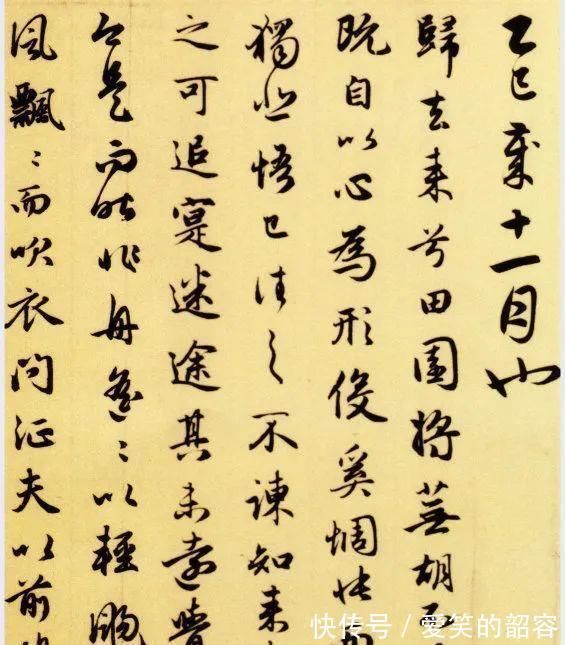 乙巳歲十一月也
歸去来兮田園將蕪胡不
既自以心為形役奚惆悵
獨悲悟已往之不諫知来
之可追寔迷途其未遠覺
今是而昨非舟遙〻以輕颺
風飄〻而吹衣問征夫以前
快传号/爱笑的韶容